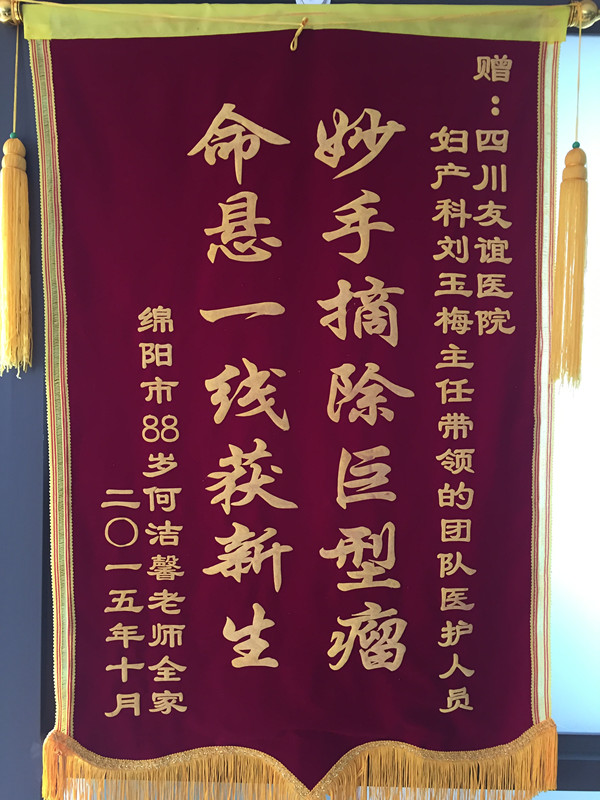 赠：四川友谊医院
妇产科刘玉梅主任带领的团队医护人员
妙手摘除巨型瘤
命悬一线获新生
绵阳市88岁何洁馨老师全家
二〇一五年十月